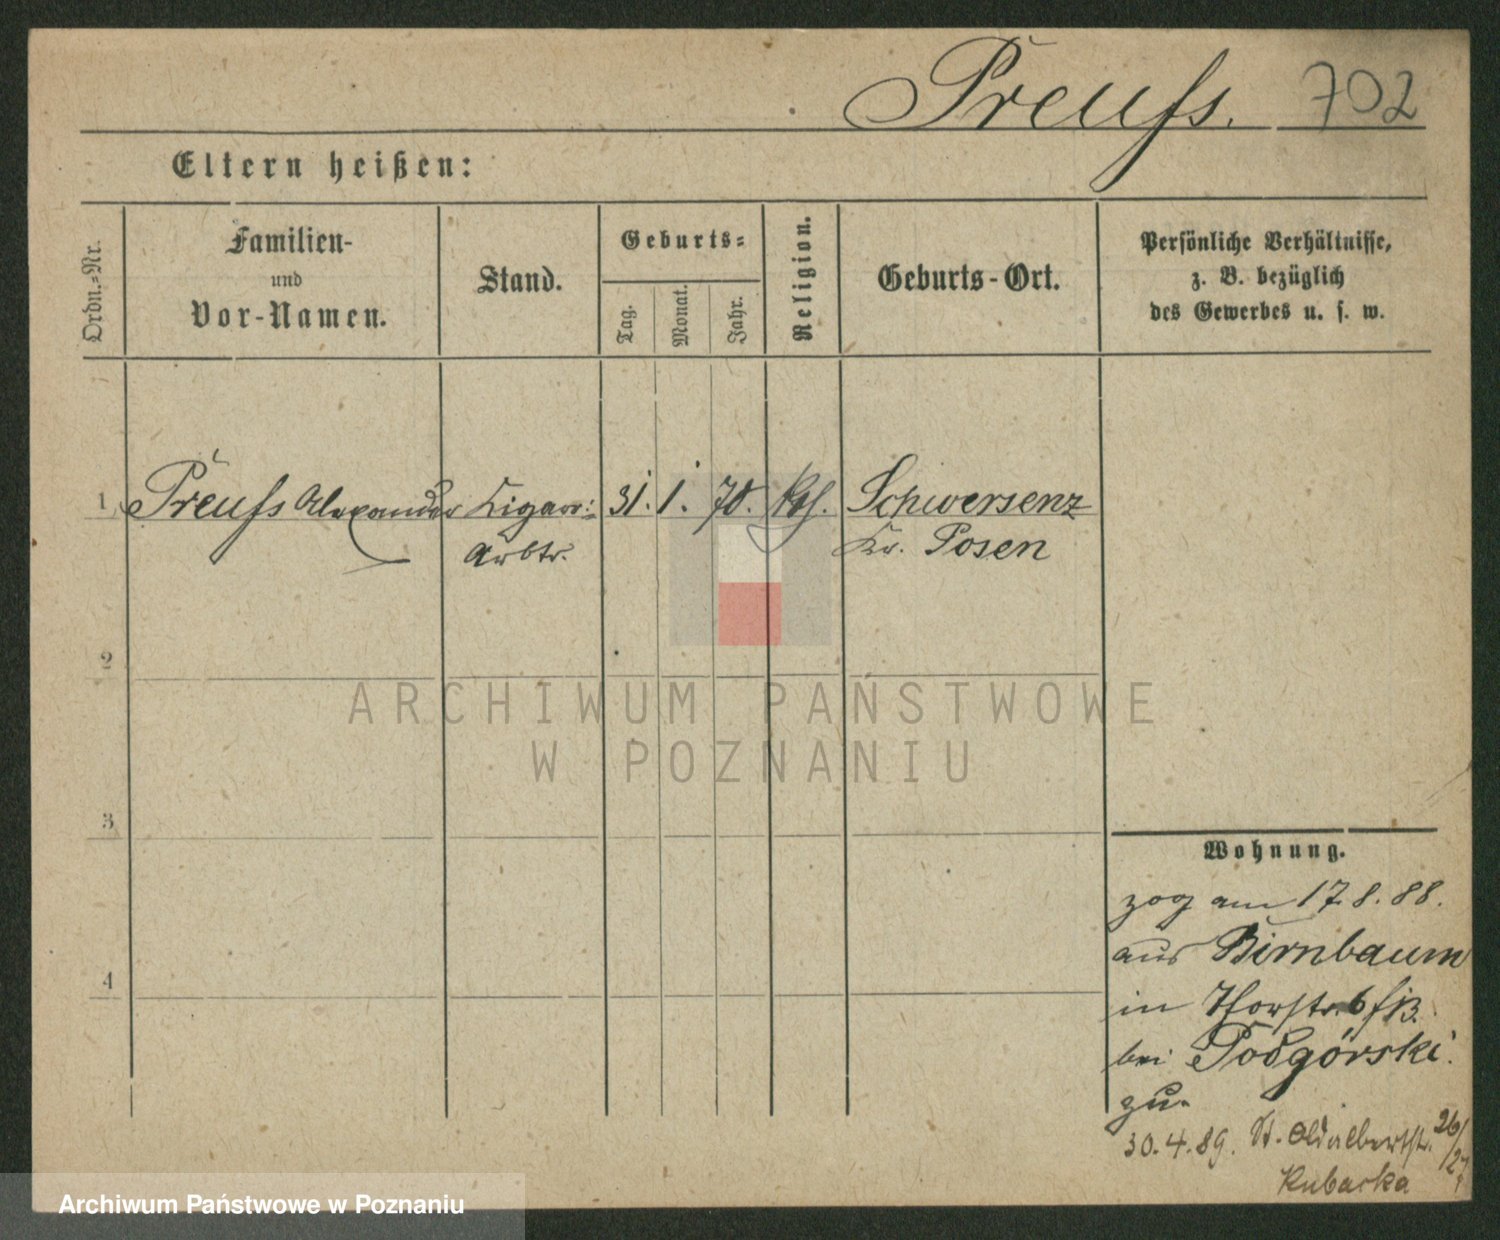 Preuſs. 702
Eltern heißen:
Ordn.-Nr.
Familien-
und
Vor-Namen.
Stand.
Geburts-
Tag.
Monat.
Jahr.
Religion.
Geburts-Ort.
Persönliche Verhältnisse,
z. B. bezüglich
des Gewerbes u. s. w.
1 Preuſs Alexander Zigarr.- 31. 1. 70. kth. Schwersenz
Arbtr. Kr. Posen
2
3
4
Wohnung.
zog am 17.8.88.
aus Birnbaum
in Thorstr. 6
bei Podgórski.
zu.
30.4.89. St. Adalbertstr. 26/27
Kubacka
ARCHIWUM PAŃSTWOWE
W POZNANIU
Archiwum Państwowe w Poznaniu